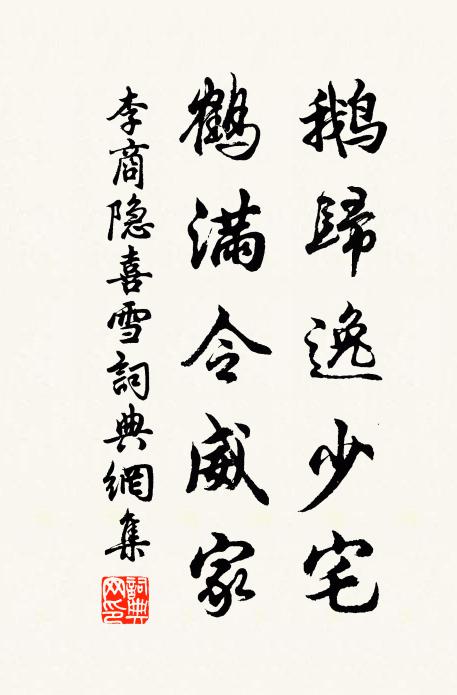 鵝歸逸少宅
鶴滿令威家
李商隐喜雪詞典網集
詞典網印